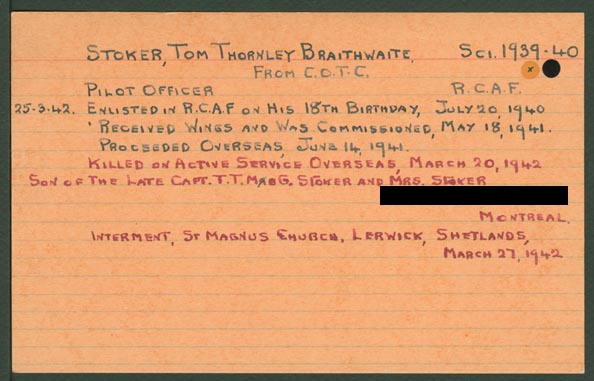 STOKER, TOM THORNLEY BRAITHWAITE. SCI. 1939-40
FROM C.O.T.C.
PILOT OFFICER R.C.A.F.
25-3-42. ENLISTED IN R.C.A.F ON HIS 18TH BIRTHDAY, JULY 20, 1940
RECEIVED WINGS AND WAS COMMISSIONED, MAY 18, 1941.
PROCEEDED OVERSEAS, JUNE 14, 1941.
KILLED ON ACTIVE SERVICE OVERSEAS, MARCH 20, 1942
SON OF THE LATE CAPT. T.T. STOKER AND MRS. STOKER
MONTREAL.
INTERMENT, ST MAGNUS CHURCH, LERWICK, SHETLANDS,
MARCH 27, 1942